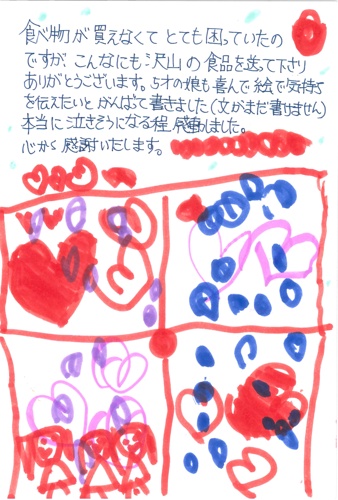 食べ物が買えなくてとても困っていたの
ですが、こんなにも沢山の食品を送て下さり
ありがとうございます。5才の娘も喜んで絵で気持ち
を伝えたいとがんばって書きました(文がまだ書けません)
本当に泣きそうになる程、感動しました。
心から感謝いたします。